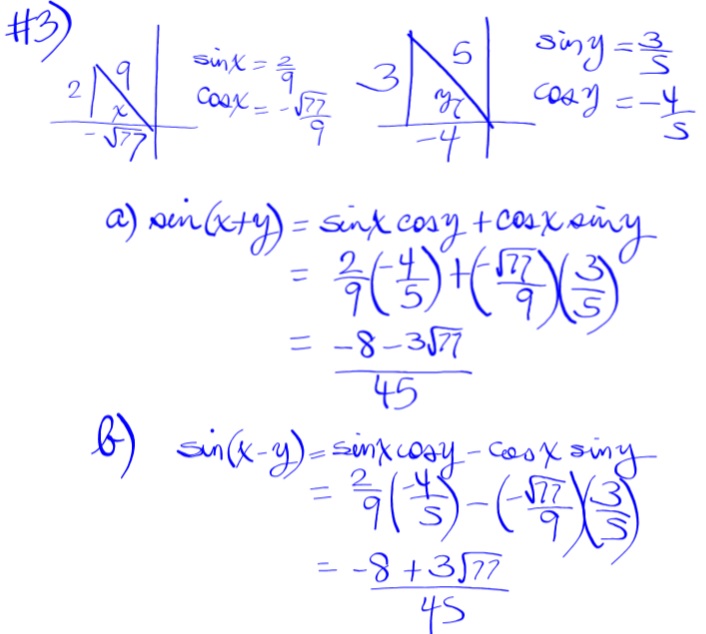 #3)
2 9 x -√77
sinx = 2/9
cosx = -√77/9
3 5 y -4
siny = 3/5
cosy = -4/5
a) sin(x+y) = sinx cosy + cosx siny
= 2/9(-4/5) + (-√77/9)(3/5)
= -8-3√77/45
b) sin(x-y) = sinx cosy - cosx siny
= 2/9(-4/5) - (-√77/9)(3/5)
= -8+3√77/45